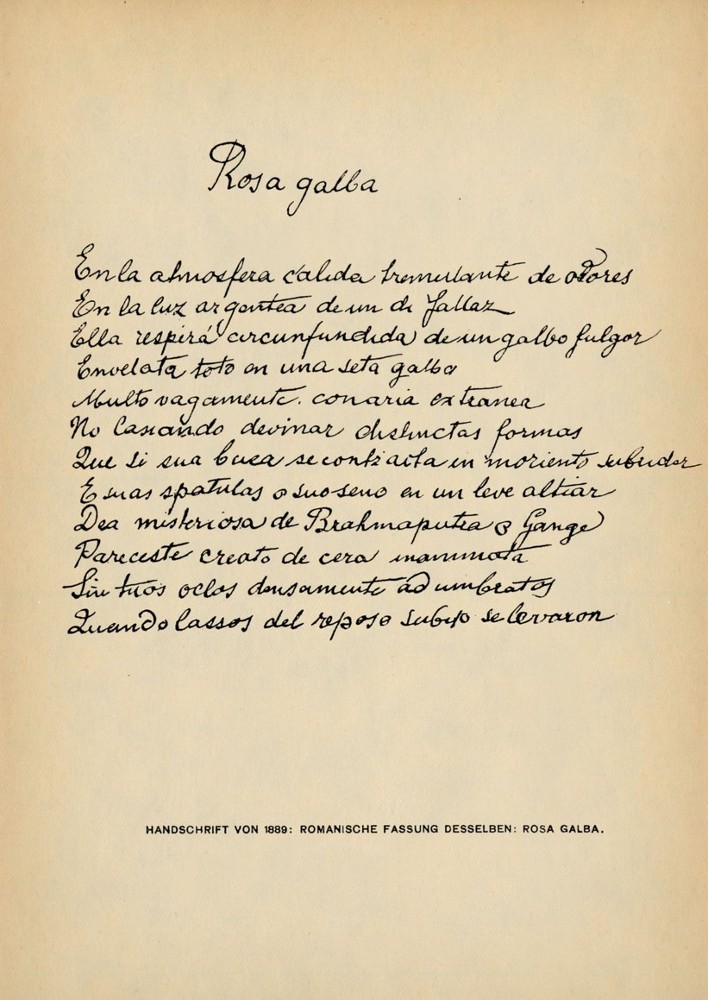 Rosa galba
En la atmosfera calida tremulante de odores
En la luz argentea de un di fallaz
Ella respirá circunfundida de un galbo fulgor
Envelata toto en una seta galba
Multo vagamente. conaria extranea
No lasciando devinar distinctas formas
Que si sua buca se contracta en moriento subrider
E suas spatulas o suo seno en un leve altiar
Dea misteriosa de Brahmaputra o Gange
Pareceste creato de cera inanimata
Sin tuos oclos densamente adumbratos
Quando lassos del reposo subito se levaron
HANDSCHRIFT VON 1889: ROMANISCHE FASSUNG DESSELBEN: ROSA GALBA.